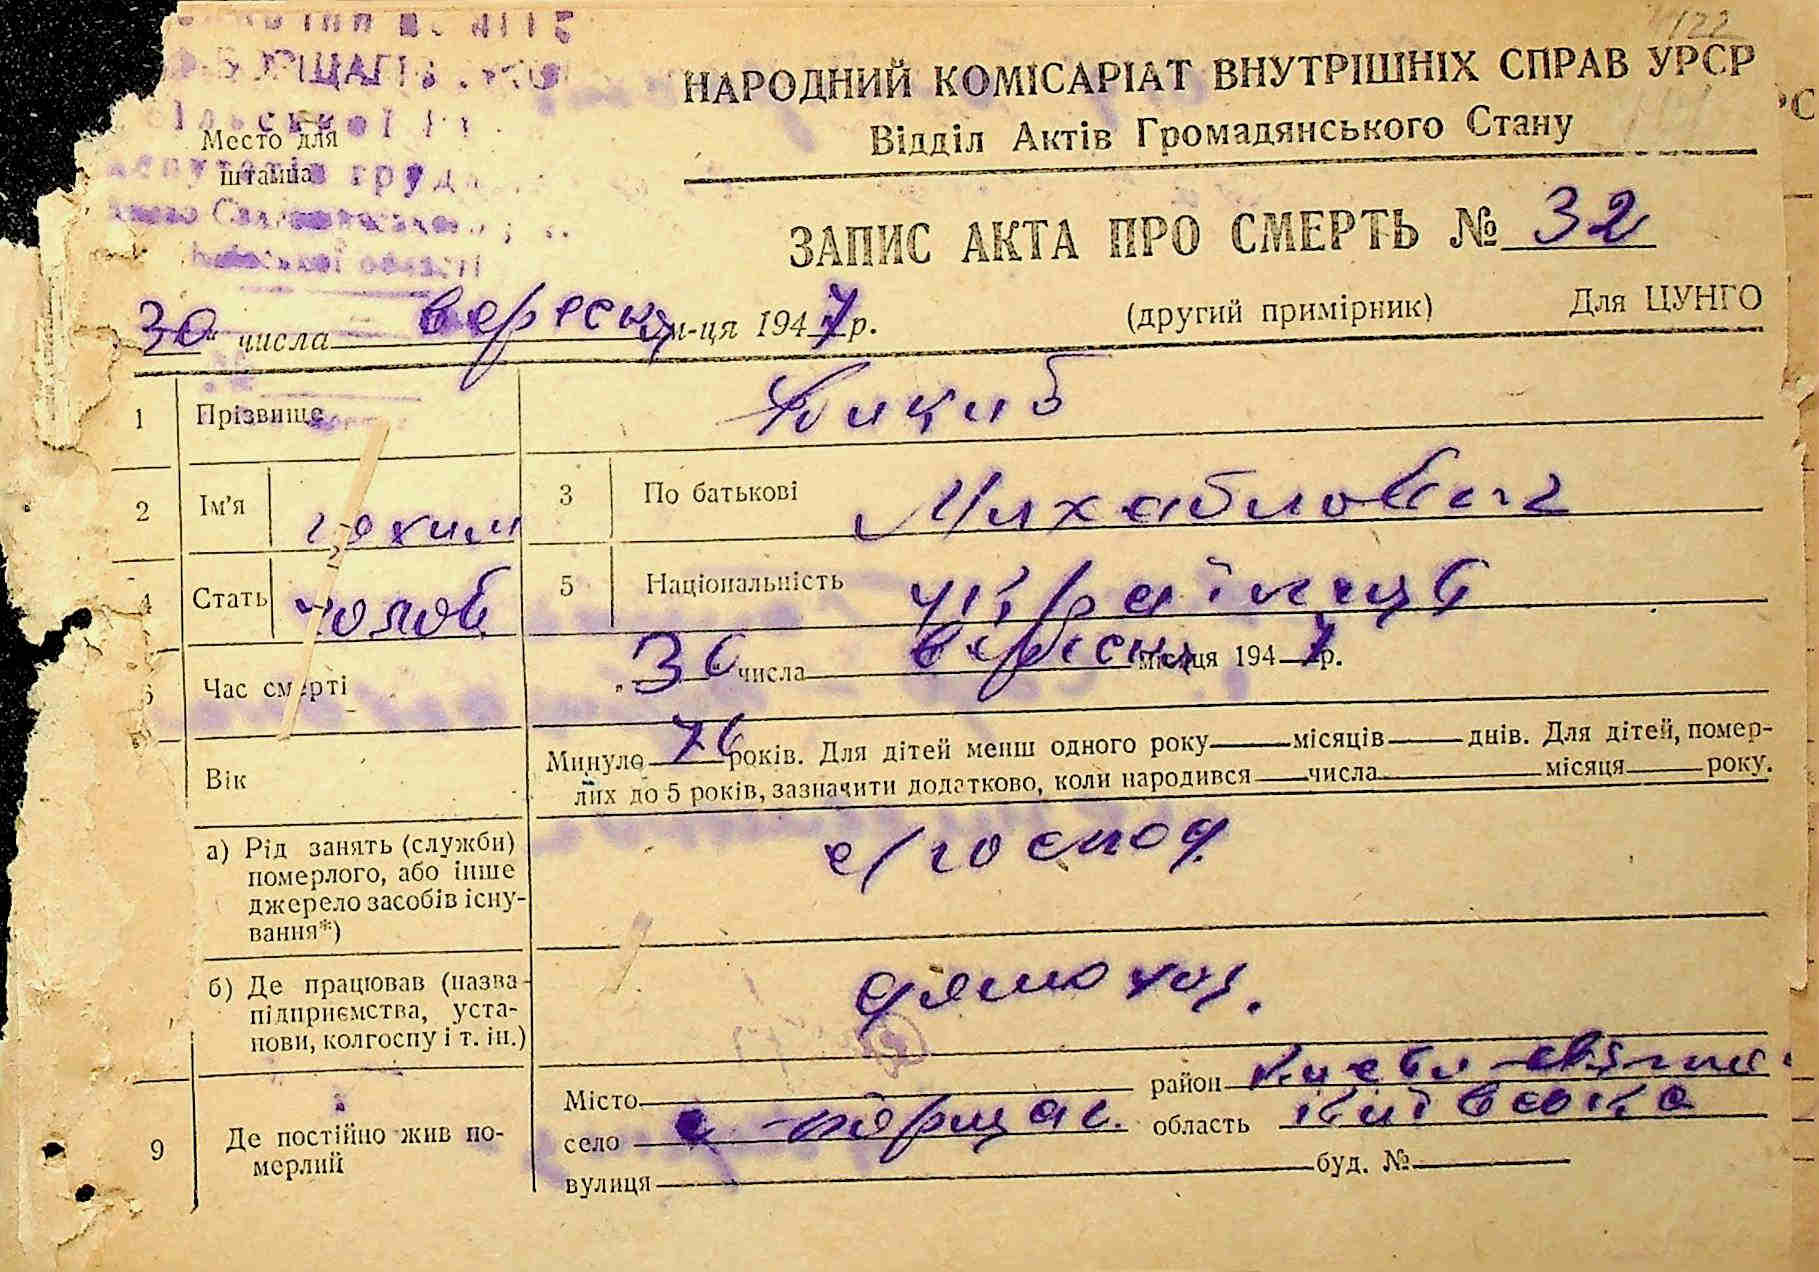 122
НАРОДНИЙ КОМІСАРІАТ ВНУТРІШНІХ СПРАВ УРСР
Відділ Актів Громадянського Стану
Место для
штампа
ЗАПИС АКТА ПРО СМЕРТЬ № 32
30 числа вересня м-ця 1947 р.
(другий примірник) Для ЦУНГО
1 Прізвище
2 Ім'я
3 По батькові Михайлович
4 Стать чолов
5 Національність українець
6 Час смерті „30" числа вересня місяця 1947 р.
Вік
Минуло 76 років. Для дітей менш одного року місяців днів. Для дітей, помер-
лих до 5 років, зазначити додатково, коли народився числа місяця року.
а) Рід занять (служби)
померлого, або інше
джерело засобів існу-
вання*)
с/господ
б) Де працював (назва
підприємства, уста-
нови, колгоспу і т. ін.)
9 Де постійно жив по-
мерлий
Місто район Києво-Святош
село Борщаг. область Київська
вулиця буд. №